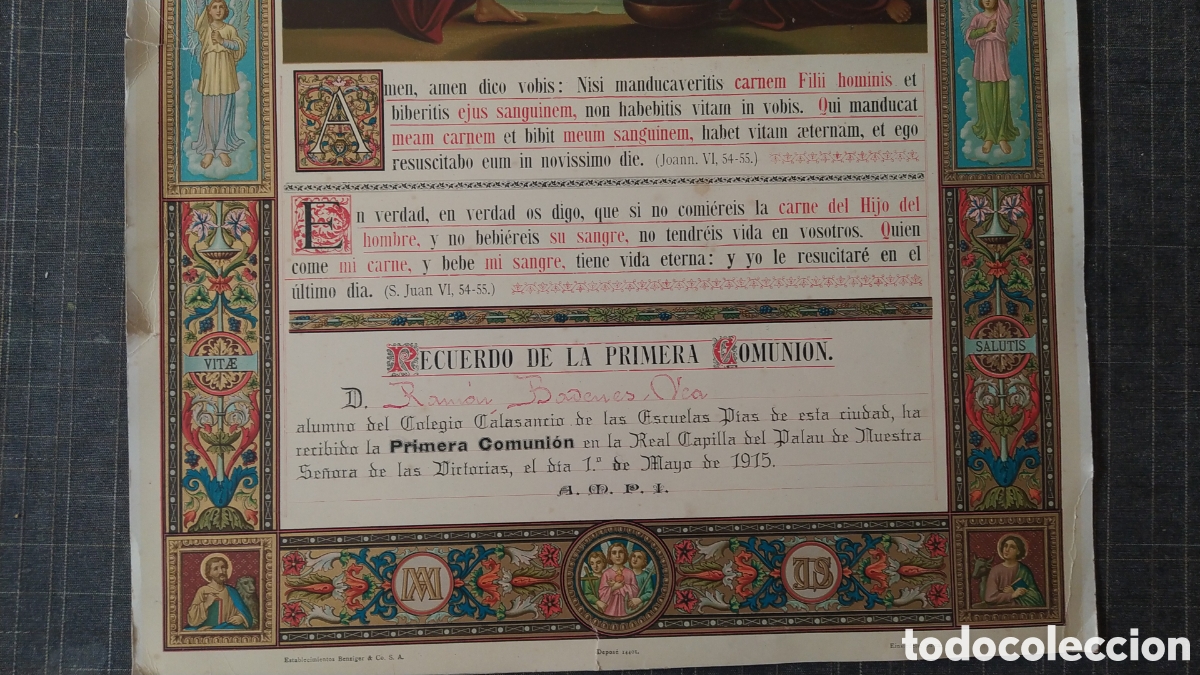 Amen, amen dico vobis: Nisi manducaveritis carnem Filii hominis et
biberitis ejus sanguinem, non habebitis vitam in vobis. Qui manducat
meam carnem et bibit meum sanguinem, habet vitam æternam, et ego
resuscitabo eum in novissimo die. (Joann. VI, 54-55.)
En verdad, en verdad os digo, que si no comiéreis la carne del Hijo del
hombre, y no bebiéreis su sangre, no tendréis vida en vosotros. Quien
come mi carne, y bebe mi sangre, tiene vida eterna: y yo le resucitaré en el
último dia. (S. Juan VI, 54-55.)
VITÆ
SALUTIS
RECUERDO DE LA PRIMERA COMUNION.
D. Ramón Badenes
alumno del Colegio Calasancio de las Escuelas Pias de esta ciudad, ha
recibido la Primera Comunión en la Real Capilla del Palau de Nuestra
Señora de las Victorias, el día 1.º de Mayo de 1915.
A. M. P. I.
Establecimientos Benziger & Co. S. A.
Deposé
todocoleccion